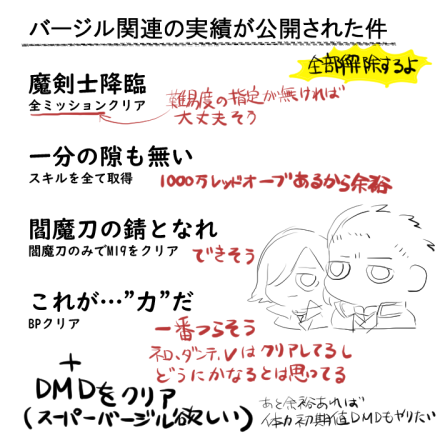 バージル関連の実績が公開された件
全部解除するよ
魔剣士降臨
全ミッションクリア
難易度の指定が無ければ
大丈夫そう
一分の隙も無い
スキルを全て取得
1000万レッドオーブあるから余裕
閻魔刀の錆となれ
閻魔刀のみでM19をクリア
できそう
これが…"力"だ
BPクリア
一番つらそう
ネロ、ダンテ、Vはクリアしてるし
どうにかなるとは思ってる
+
DMDをクリア
(スーパーバージル欲しい)
あと余裕あれば
体力初期値DMDもやりたい